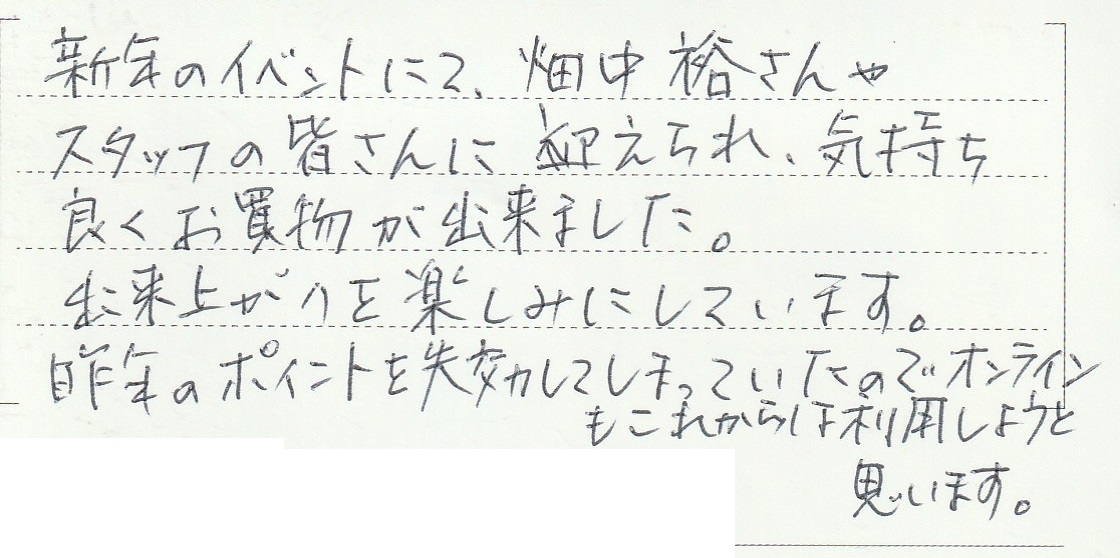 新年のイベントにて、畑中裕さんや
スタッフの皆さんに迎えられ、気持ち
良くお買物が出来ました。
出来上がりを楽しみにしています。
昨年のポイントを失効してしまっていたのでオンライン
もこれからは利用しようと
思います。